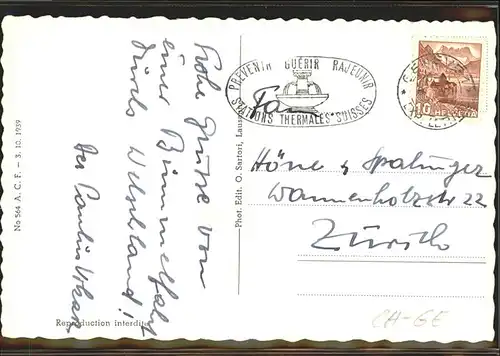 Frohe Grüsse von
einer Bummelfahrt
durchs Welschland!
Der Paulus
No 564 A. C. F. – 3. 10. 1939
Reproduction interdite
Phot. Edit. O. Sartori,
PRÉVENIR GUÉRIR RAJEUNIR
STATIONS THERMALES SUISSES
10 HELVETIA
Fa.
Höne & Spalinger
Wannenholzstr 22
Zürich
CH-GE